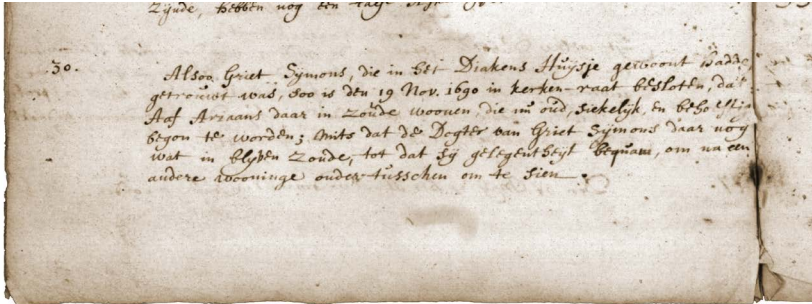 zijnde, hebben nog een
30.
Alsoo Griet Sijmons, die in het Diakens Huijsje gewoont hadde,
getrouwt was, soo is den 19 Nov. 1690 in kerken-raat besloten, dat
Aaf Ariaans daar in zoude woonen, die nu oud, siekelijk, en behoeftig
begon te worden; mits dat de Dogter van Griet Sijmons daar nog
wat in blijven zoude, tot dat sij gelegentheijt bequam, om na een
andere wooninge ondertusschen om te sien.